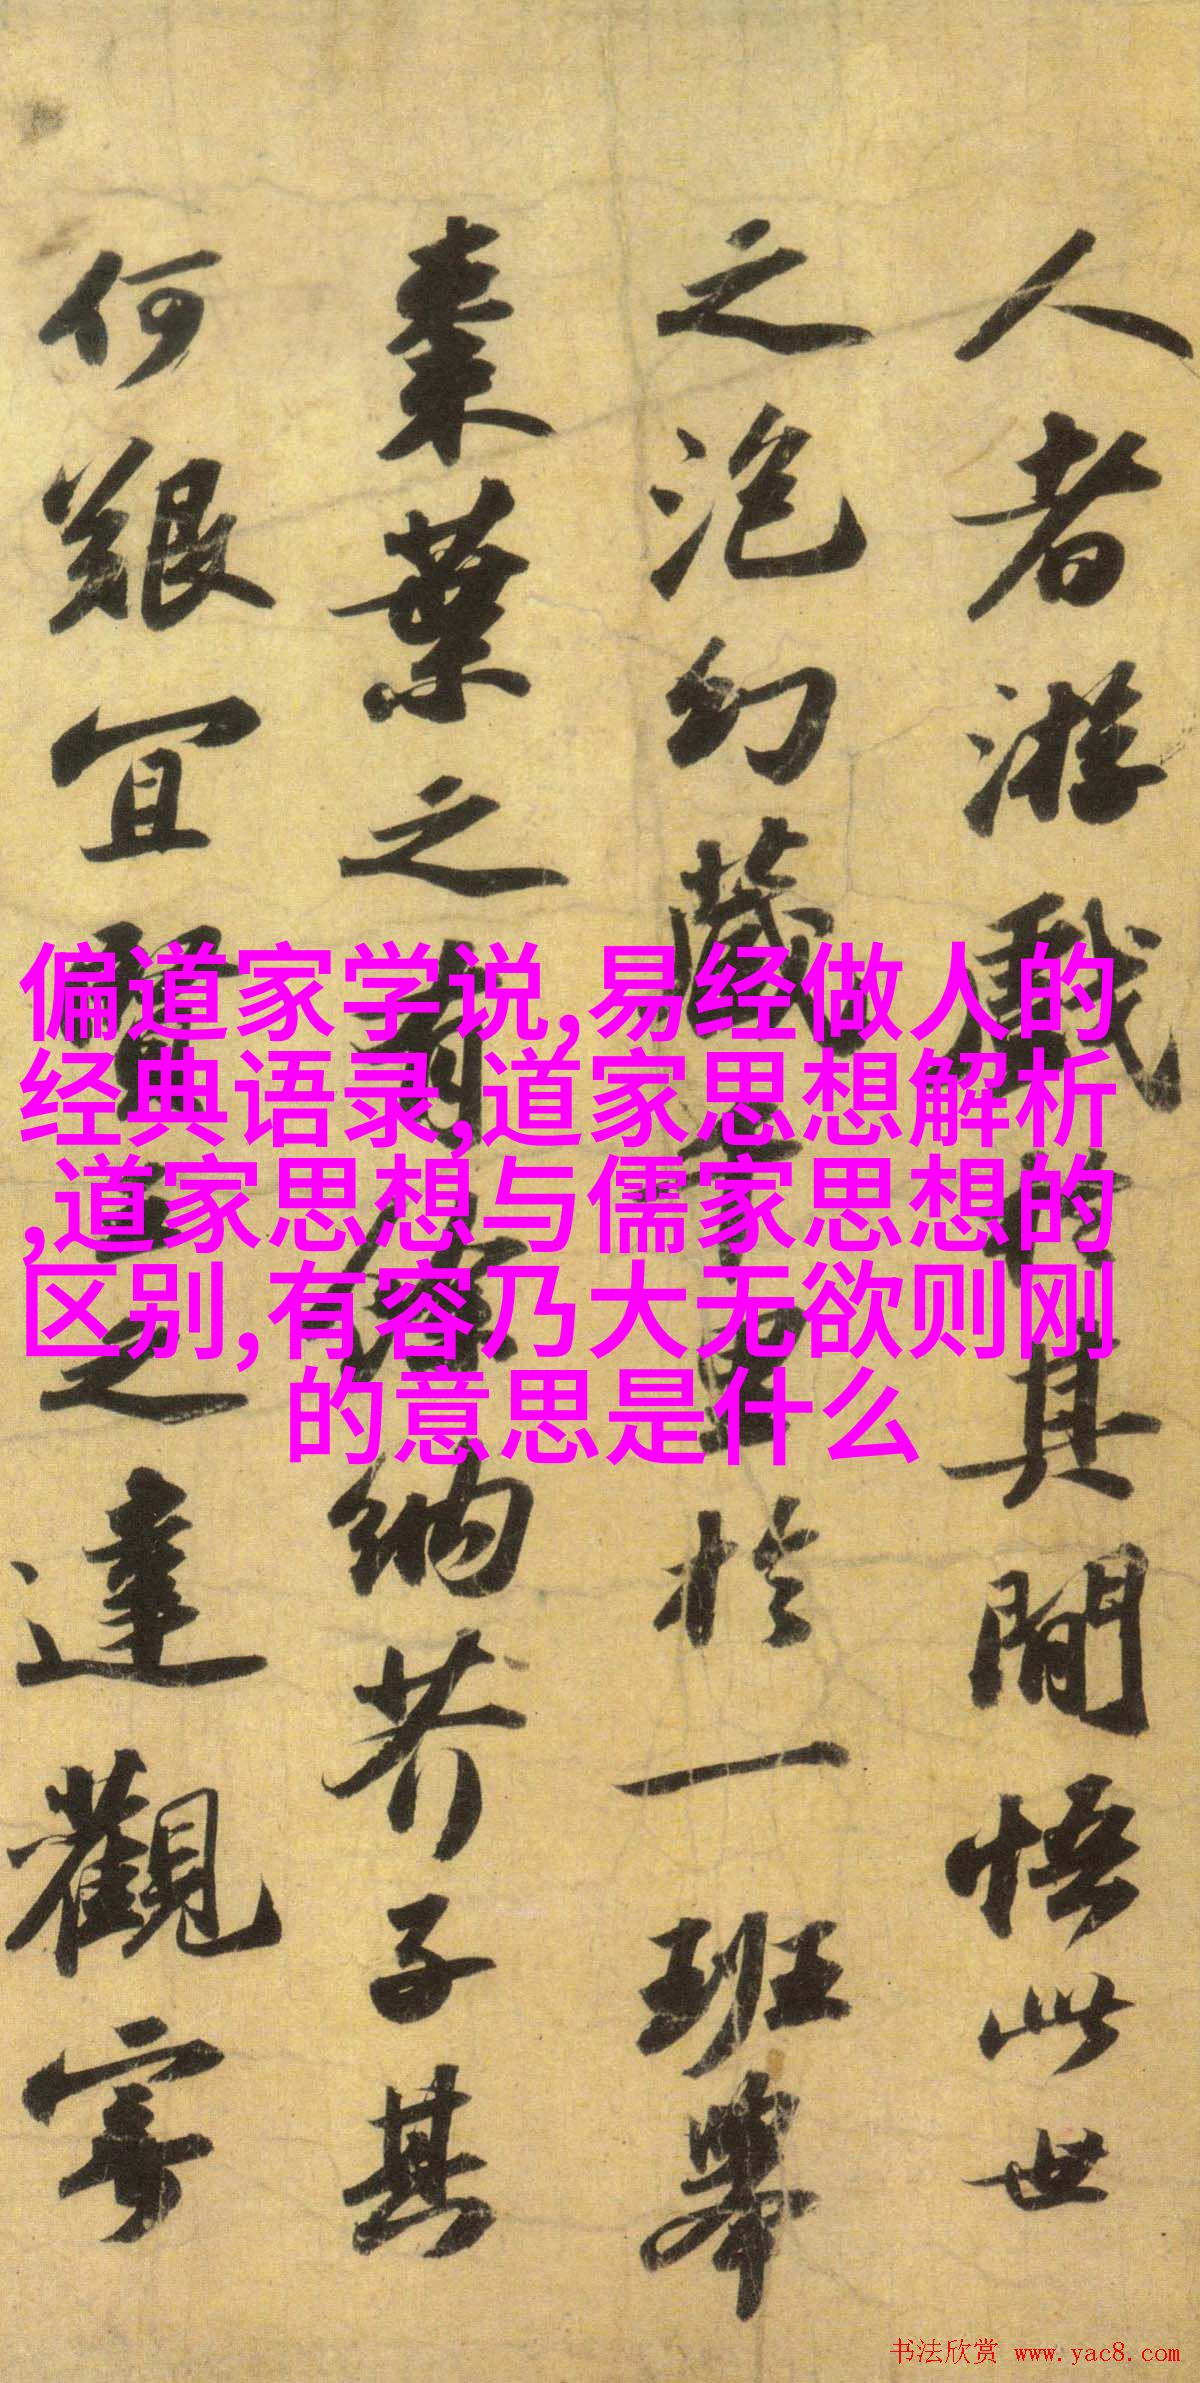 人者游戲於其間悟此世
之泡幻藏千里於一班舉
棗葉之有餘納芥子其
何艱宜賢王之達觀寄
偏道家学说,易经做人的
经典语录,道家思想解析
,道家思想与儒家思想的
区别,有容乃大无欲则刚
的意思是什么
书法欣赏 www.yac8.com